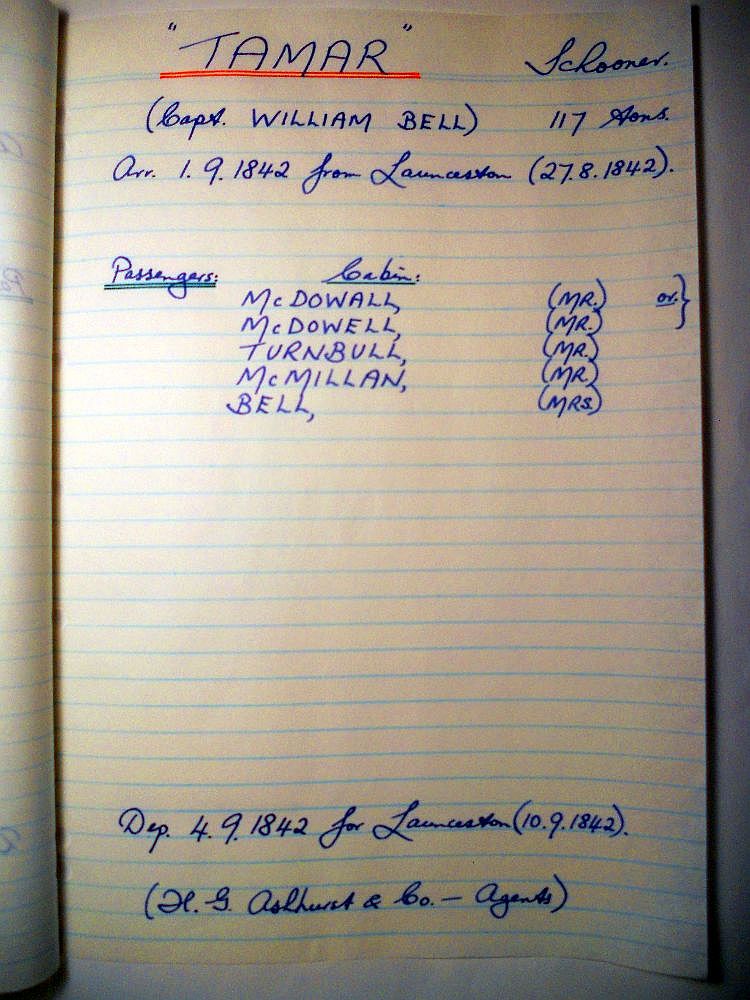 "TAMAR" Schooner.
(Capt. WILLIAM BELL) 117 Tons.
Arr. 1.9.1842 from Launceston (27.8.1842).
Passengers: Cabin:
McDOWALL, (MR.) or }
McDOWELL, (MR.)
TURNBULL, (MR.)
McMILLAN, (MR.)
BELL, (MRS.)
Dep. 4.9.1842 for Launceston (10.9.1842).
(H. G. Ashurst & Co. — Agents)